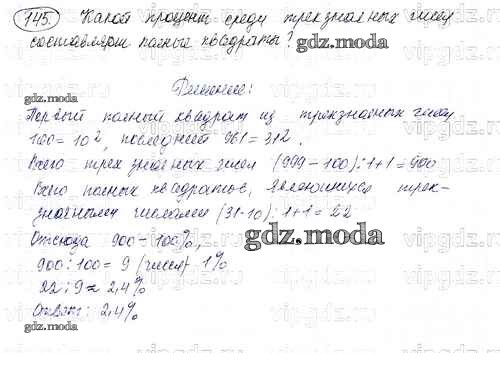 145. Какой процент среди трехзначных чисел
составляют полные квадраты?
gdz.moda
Решение:
gdz.moda
Первый полный квадрат из трехзначных чисел
100 = 10², последнее 961 = 31².
Всего трехзначных чисел (999 – 100) : 1 + 1 = 900
Всего полных квадратов, являющихся трех-
значными числами (31 - 10) : 1 + 1 = 22
Отсюда 900 – 100%,
gdz.moda
900 : 100 = 9 (чисел) 1%
22 : 9 ≈ 2,4%
Ответ: 2,4%
gdz.moda